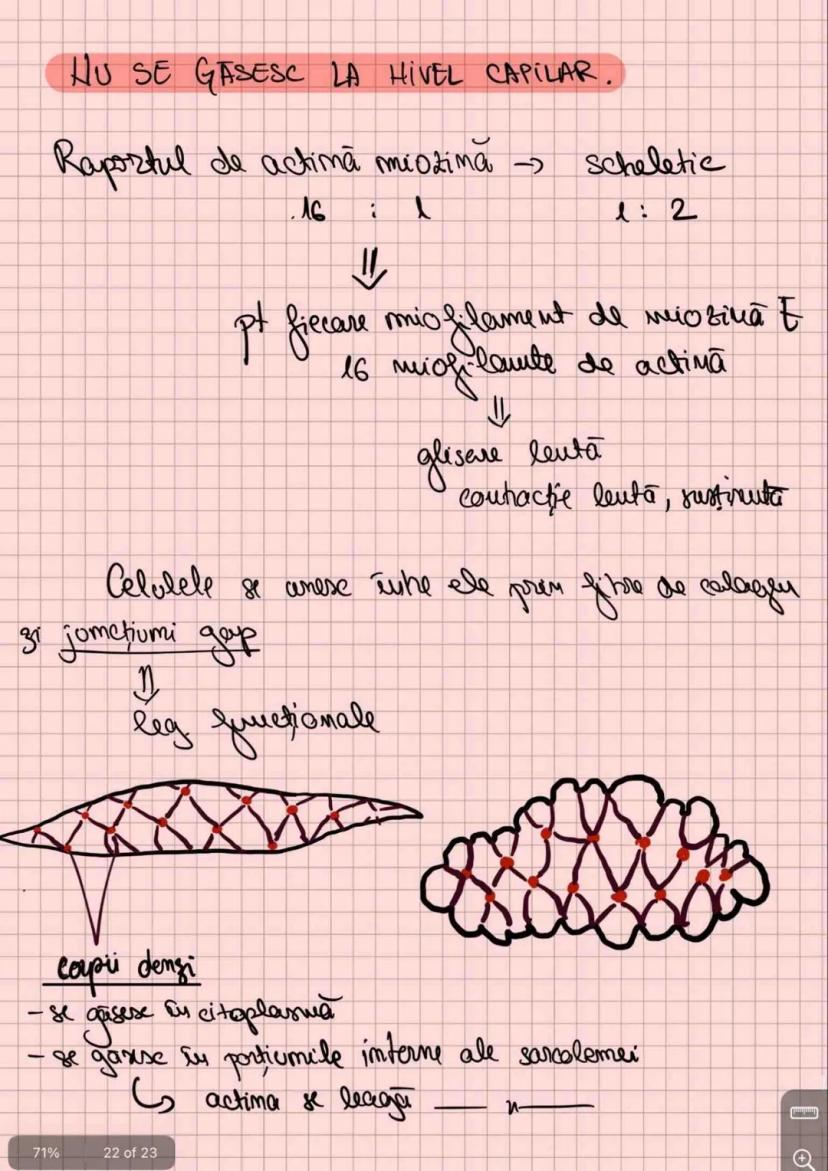 NU SE GĂSESC LA NIVEL CAPILAR.
Raportul de actină miozină → scheletic
16 : 1 1 : 2
⇓
pt fiecare miofilament de miozină E
16 miofilamente de actină
⇓
glisare lentă
contracție lentă, susținută
Celulele se unesc între ele prin fibre de colagen
și joncțiuni gap
⇓
leg funcționale
corpii denși
- se găsesc în citoplasmă
- se găsesc în porțiunile interne ale sarcolemei
↳ actina se leagă — " —
71% 22 of 23